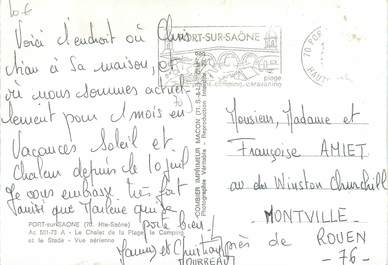 10.€
Voici l'endroit où Chris
tian a sa maison, et
où nous sommes actuel
lement pour 1 mois en
Vacances Soleil et
Chaleur depuis le 10 juil
Je vous embrasse très fort
ainsi que Marlène qui se
porte bien!
PORT-sur-SAÔNE (70. Hte-Saône)
Ac 501-73 A - Le Chalet de la Plage, le Camping
et le Stade - Vue aérienne
COMBIER IMPRIMEUR MACON
Photographie Véritable - Reproduction Interdite
PORT-SUR-SAÔNE
plage
camping, caravaning
70 PORT
HAUTE
Monsieur, Madame et
Françoise AMIET
av du Winston Churchill
MONTVILLE
près de ROUEN
- 76 -